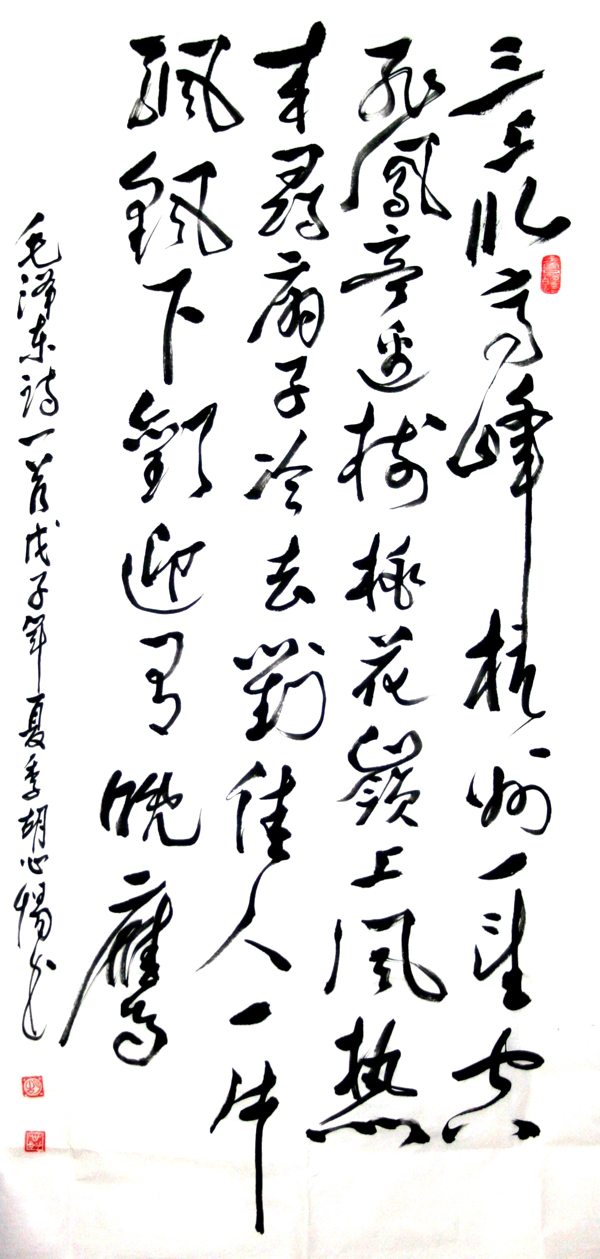 三上北高峰杭州一望空
飛鳳亭邊樹桃花嶺上風热
来尋扇子冷去對佳人一片
飄飖下歡迎有晚鷹
毛泽东诗一首戊子年夏季胡心惕书